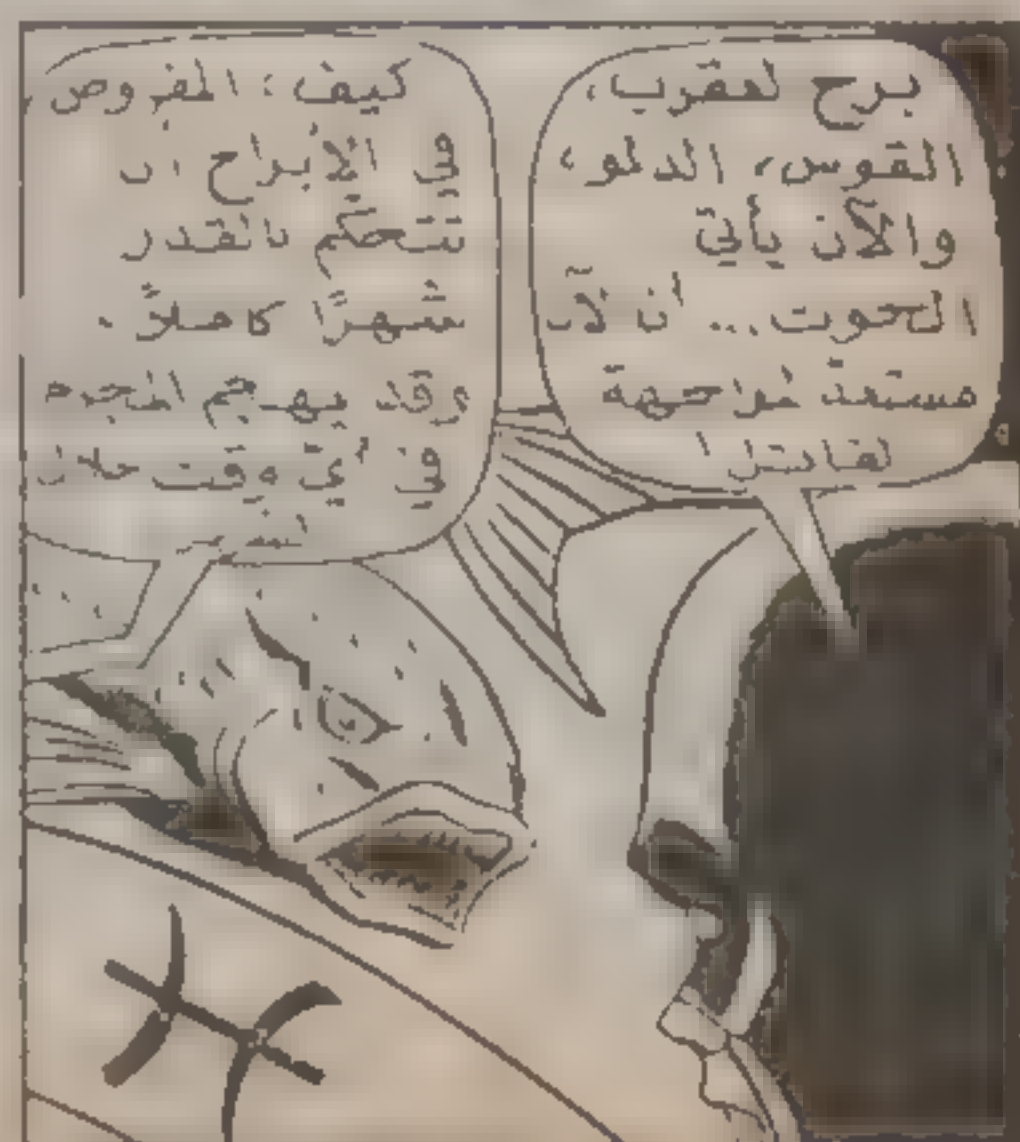 برج لعقرب،
القوس، الدلو،
والآن يأتي
الحوت... أن لآن
مستعدّ لمواجهة
لقاتل!
كيف؛ المفروض
في الأبراج أن
تتحكّم بالقدر
شهرًا كاملاً.
وقد يهجم المجرم
في أيّ وقت خلال